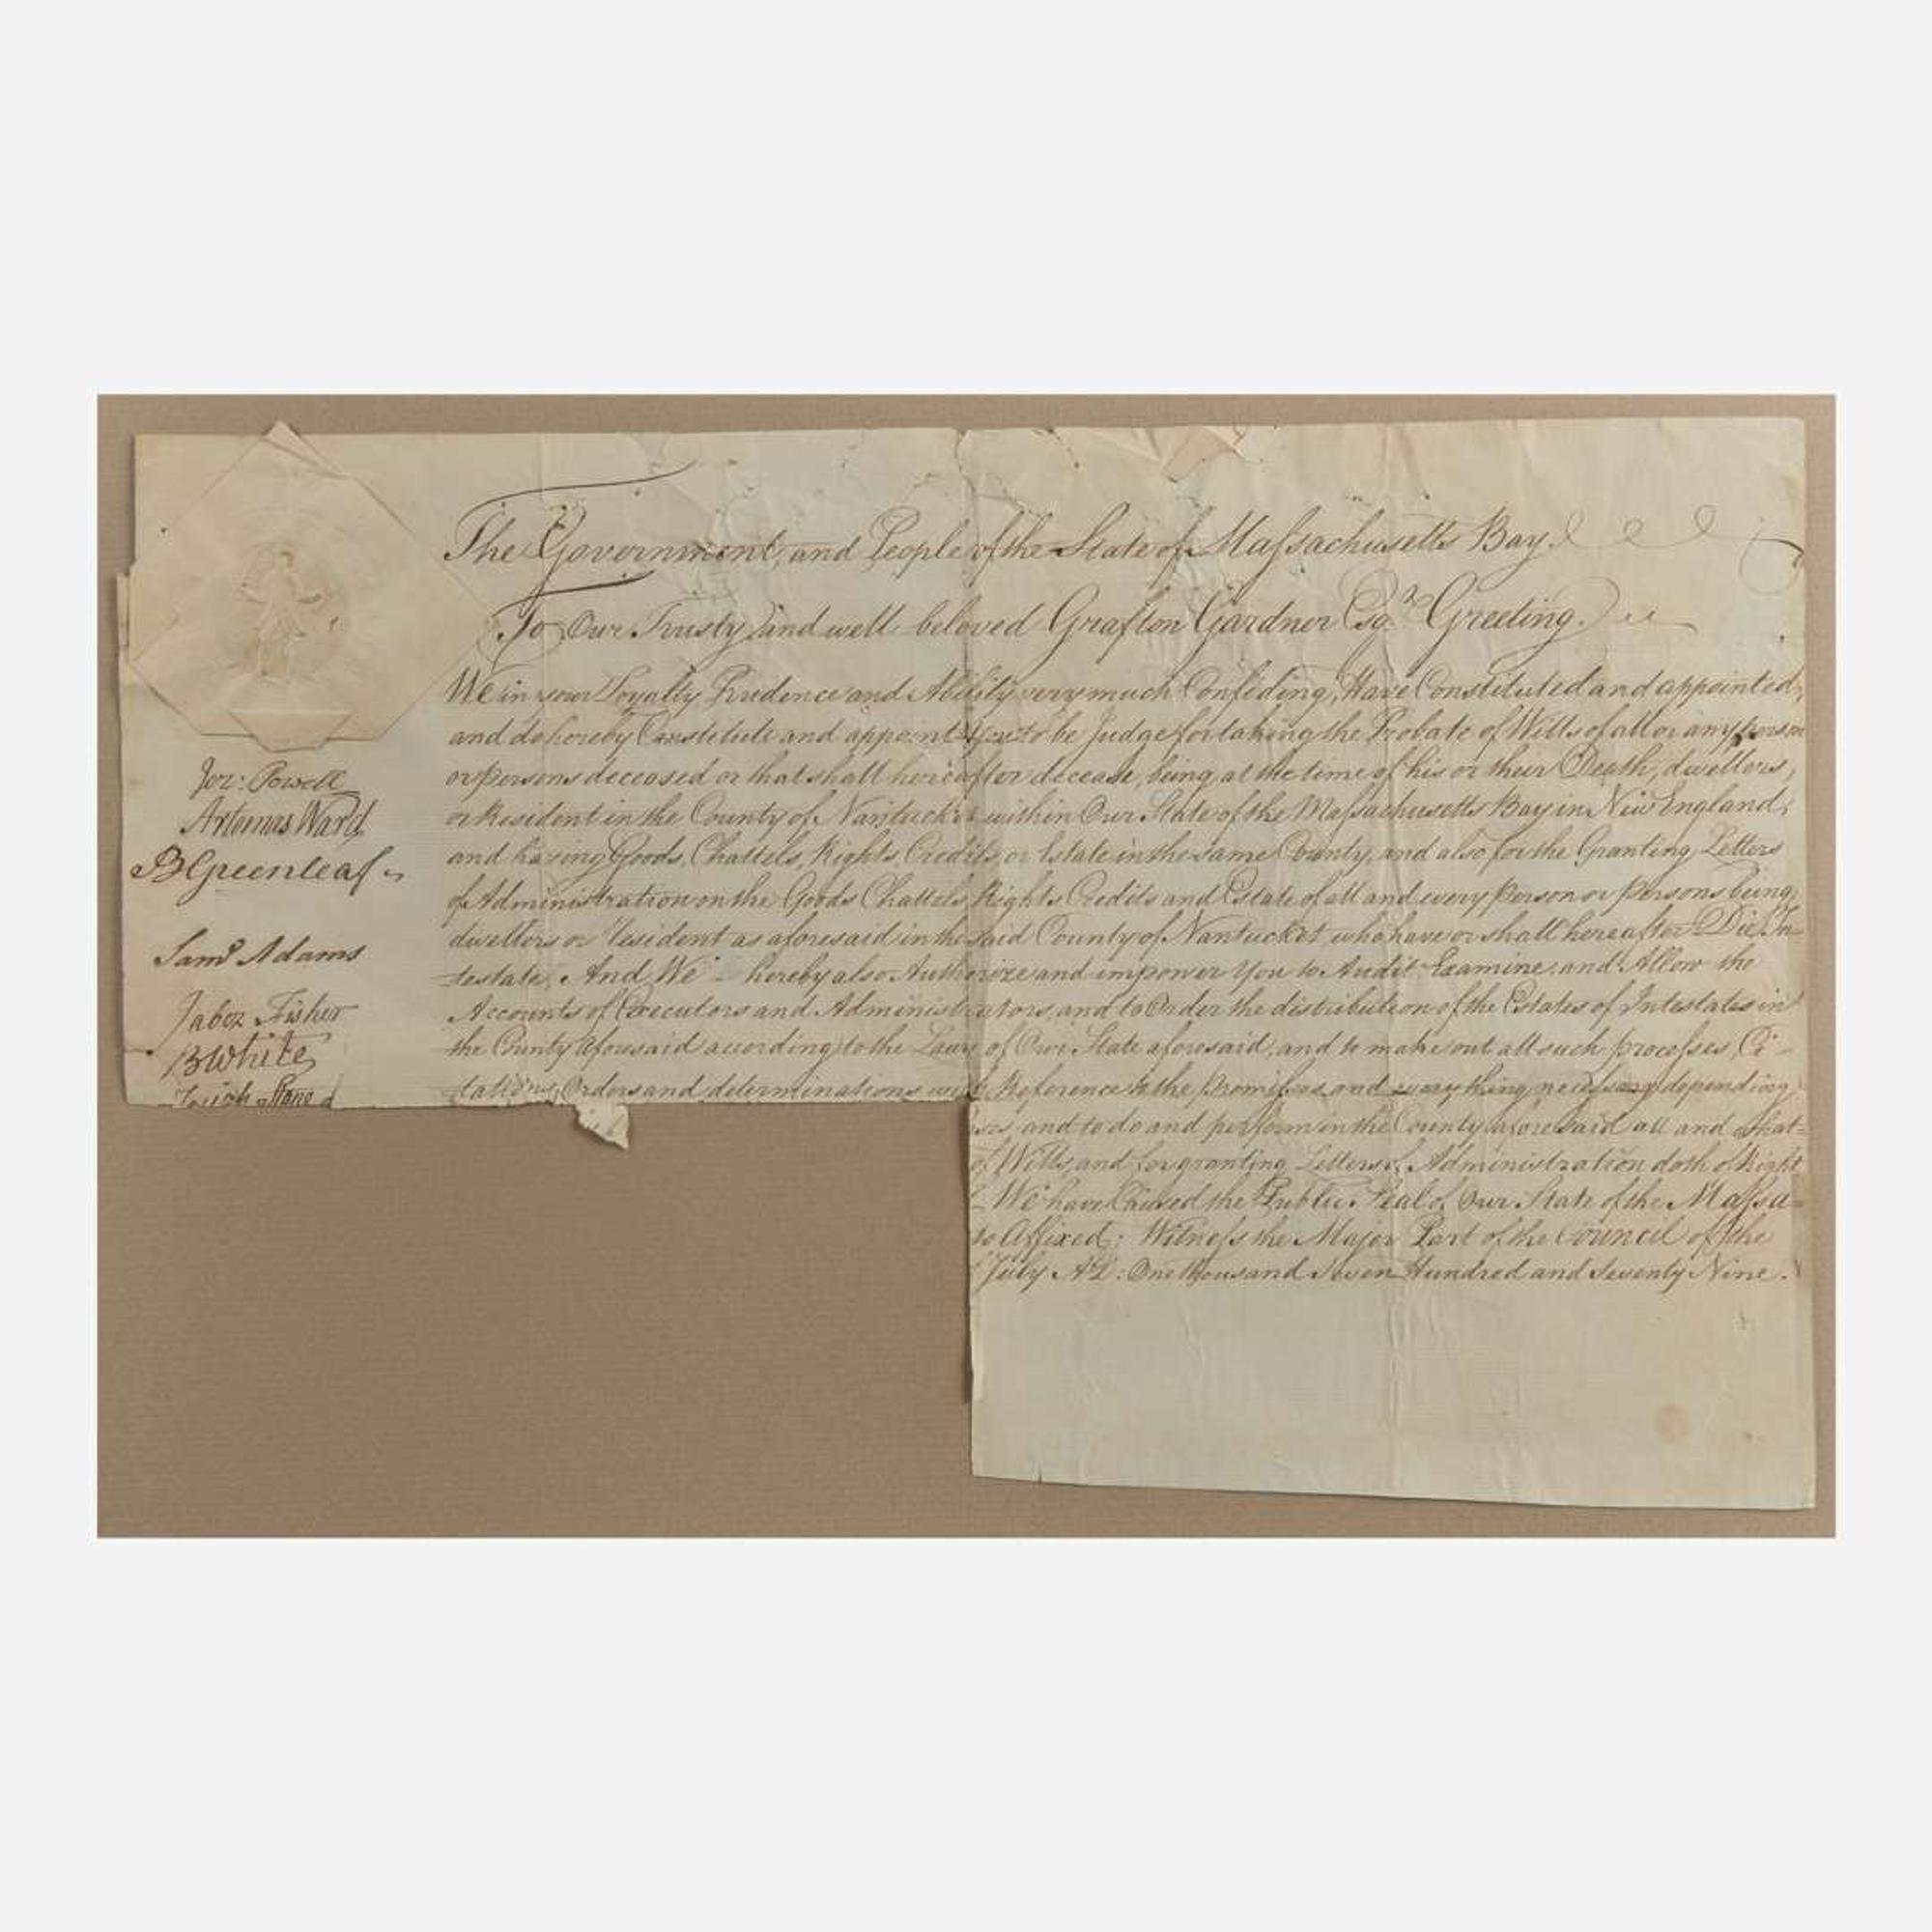 The Government, and People of the State of Massachusetts Bay.
To Our Trusty and well beloved Grafton Gardner Esqr. Greeting.
We in your Loyalty Prudence and Ability very much Confiding, Have Constituted and appointed,
and do hereby Constitute and appoint You to be Judge for taking the Probate of Wills of all or any person
or persons deceased or that shall hereafter decease, being at the time of his or their Death, dwellers,
or Resident in the County of Nantucket within Our State of the Massachusetts Bay in New England,
and having Goods, Chattels, Rights, Credits, or Estate in the same County, and also for the Granting Letters
of Administration on the Goods Chattels, Rights Credits and Estate of all and every person or persons being
dwellers or Resident as aforesaid in the said County of Nantucket, who have or shall hereafter Die, In=
testate, And We - hereby also Authorize and impower You to Audit Examine and Allow the
Accounts of Executors and Administrators, and to Order the distribution of the Estates of Intestates in
the County aforesaid according to the Laws of Our State aforesaid, and to make out all such processes, Ci-
tations, Orders and determinations with Reference to the Premisses, and every thing necessary depending
and to do and perform in the County aforesaid all and what=
of Wills, and for granting Letters of Administration doth of Right
We have Caused the Public Seal of Our State of the Massa=
to Affixed: Witness the Major Part of the Council of the
July AD: One thousand Seven Hundred and Seventy Nine.
Jer: Powell
Artemas Ward
B Greenleaf
Saml Adams
Jabez Fisher
B White
Josiah Stone